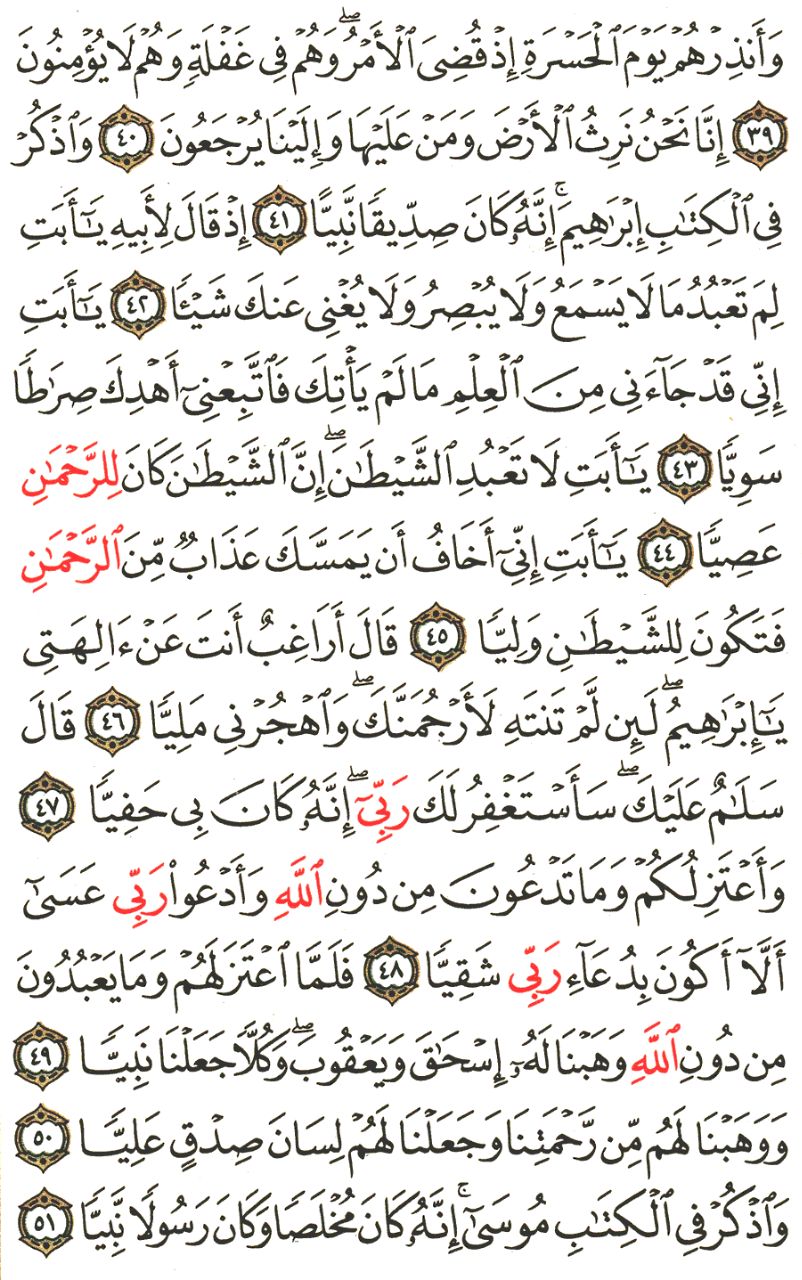 وَأَنذِرْهُمْ يَوْمَ ٱلْحَسْرَةِ إِذْ قُضِىَ ٱلْأَمْرُ ۖ وَهُمْ فِى غَفْلَةٍ وَهُمْ لَا يُؤْمِنُونَ
٣٩ إِنَّا نَحْنُ نَرِثُ ٱلْأَرْضَ وَمَنْ عَلَيْهَا وَإِلَيْنَا يُرْجَعُونَ ٤٠ وَٱذْكُرْ
فِى ٱلْكِتَٰبِ إِبْرَٰهِيمَ ۚ إِنَّهُۥ كَانَ صِدِّيقًا نَّبِيًّا ٤١ إِذْ قَالَ لِأَبِيهِ يَٰٓأَبَتِ
لِمَ تَعْبُدُ مَا لَا يَسْمَعُ وَلَا يُبْصِرُ وَلَا يُغْنِى عَنكَ شَيْـًٔا ٤٢ يَٰٓأَبَتِ
إِنِّى قَدْ جَآءَنِى مِنَ ٱلْعِلْمِ مَا لَمْ يَأْتِكَ فَٱتَّبِعْنِىٓ أَهْدِكَ صِرَٰطًا
سَوِيًّا ٤٣ يَٰٓأَبَتِ لَا تَعْبُدِ ٱلشَّيْطَٰنَ ۖ إِنَّ ٱلشَّيْطَٰنَ كَانَ لِلرَّحْمَٰنِ
عَصِيًّا ٤٤ يَٰٓأَبَتِ إِنِّىٓ أَخَافُ أَن يَمَسَّكَ عَذَابٌ مِّنَ ٱلرَّحْمَٰنِ
فَتَكُونَ لِلشَّيْطَٰنِ وَلِيًّا ٤٥ قَالَ أَرَاغِبٌ أَنتَ عَنْ ءَالِهَتِى
يَٰٓإِبْرَٰهِيمُ ۖ لَئِن لَّمْ تَنتَهِ لَأَرْجُمَنَّكَ ۖ وَٱهْجُرْنِى مَلِيًّا ٤٦ قَالَ
سَلَٰمٌ عَلَيْكَ ۖ سَأَسْتَغْفِرُ لَكَ رَبِّىٓ ۖ إِنَّهُۥ كَانَ بِى حَفِيًّا ٤٧
وَأَعْتَزِلُكُمْ وَمَا تَدْعُونَ مِن دُونِ ٱللَّهِ وَأَدْعُوا۟ رَبِّى عَسَىٰٓ
أَلَّآ أَكُونَ بِدُعَآءِ رَبِّى شَقِيًّا ٤٨ فَلَمَّا ٱعْتَزَلَهُمْ وَمَا يَعْبُدُونَ
مِن دُونِ ٱللَّهِ وَهَبْنَا لَهُۥٓ إِسْحَٰقَ وَيَعْقُوبَ ۖ وَكُلًّا جَعَلْنَا نَبِيًّا ٤٩
وَوَهَبْنَا لَهُم مِّن رَّحْمَتِنَا وَجَعَلْنَا لَهُمْ لِسَانَ صِدْقٍ عَلِيًّا ٥٠
وَٱذْكُرْ فِى ٱلْكِتَٰبِ مُوسَىٰٓ ۚ إِنَّهُۥ كَانَ مُخْلَصًا وَكَانَ رَسُولًا نَّبِيًّا ٥١